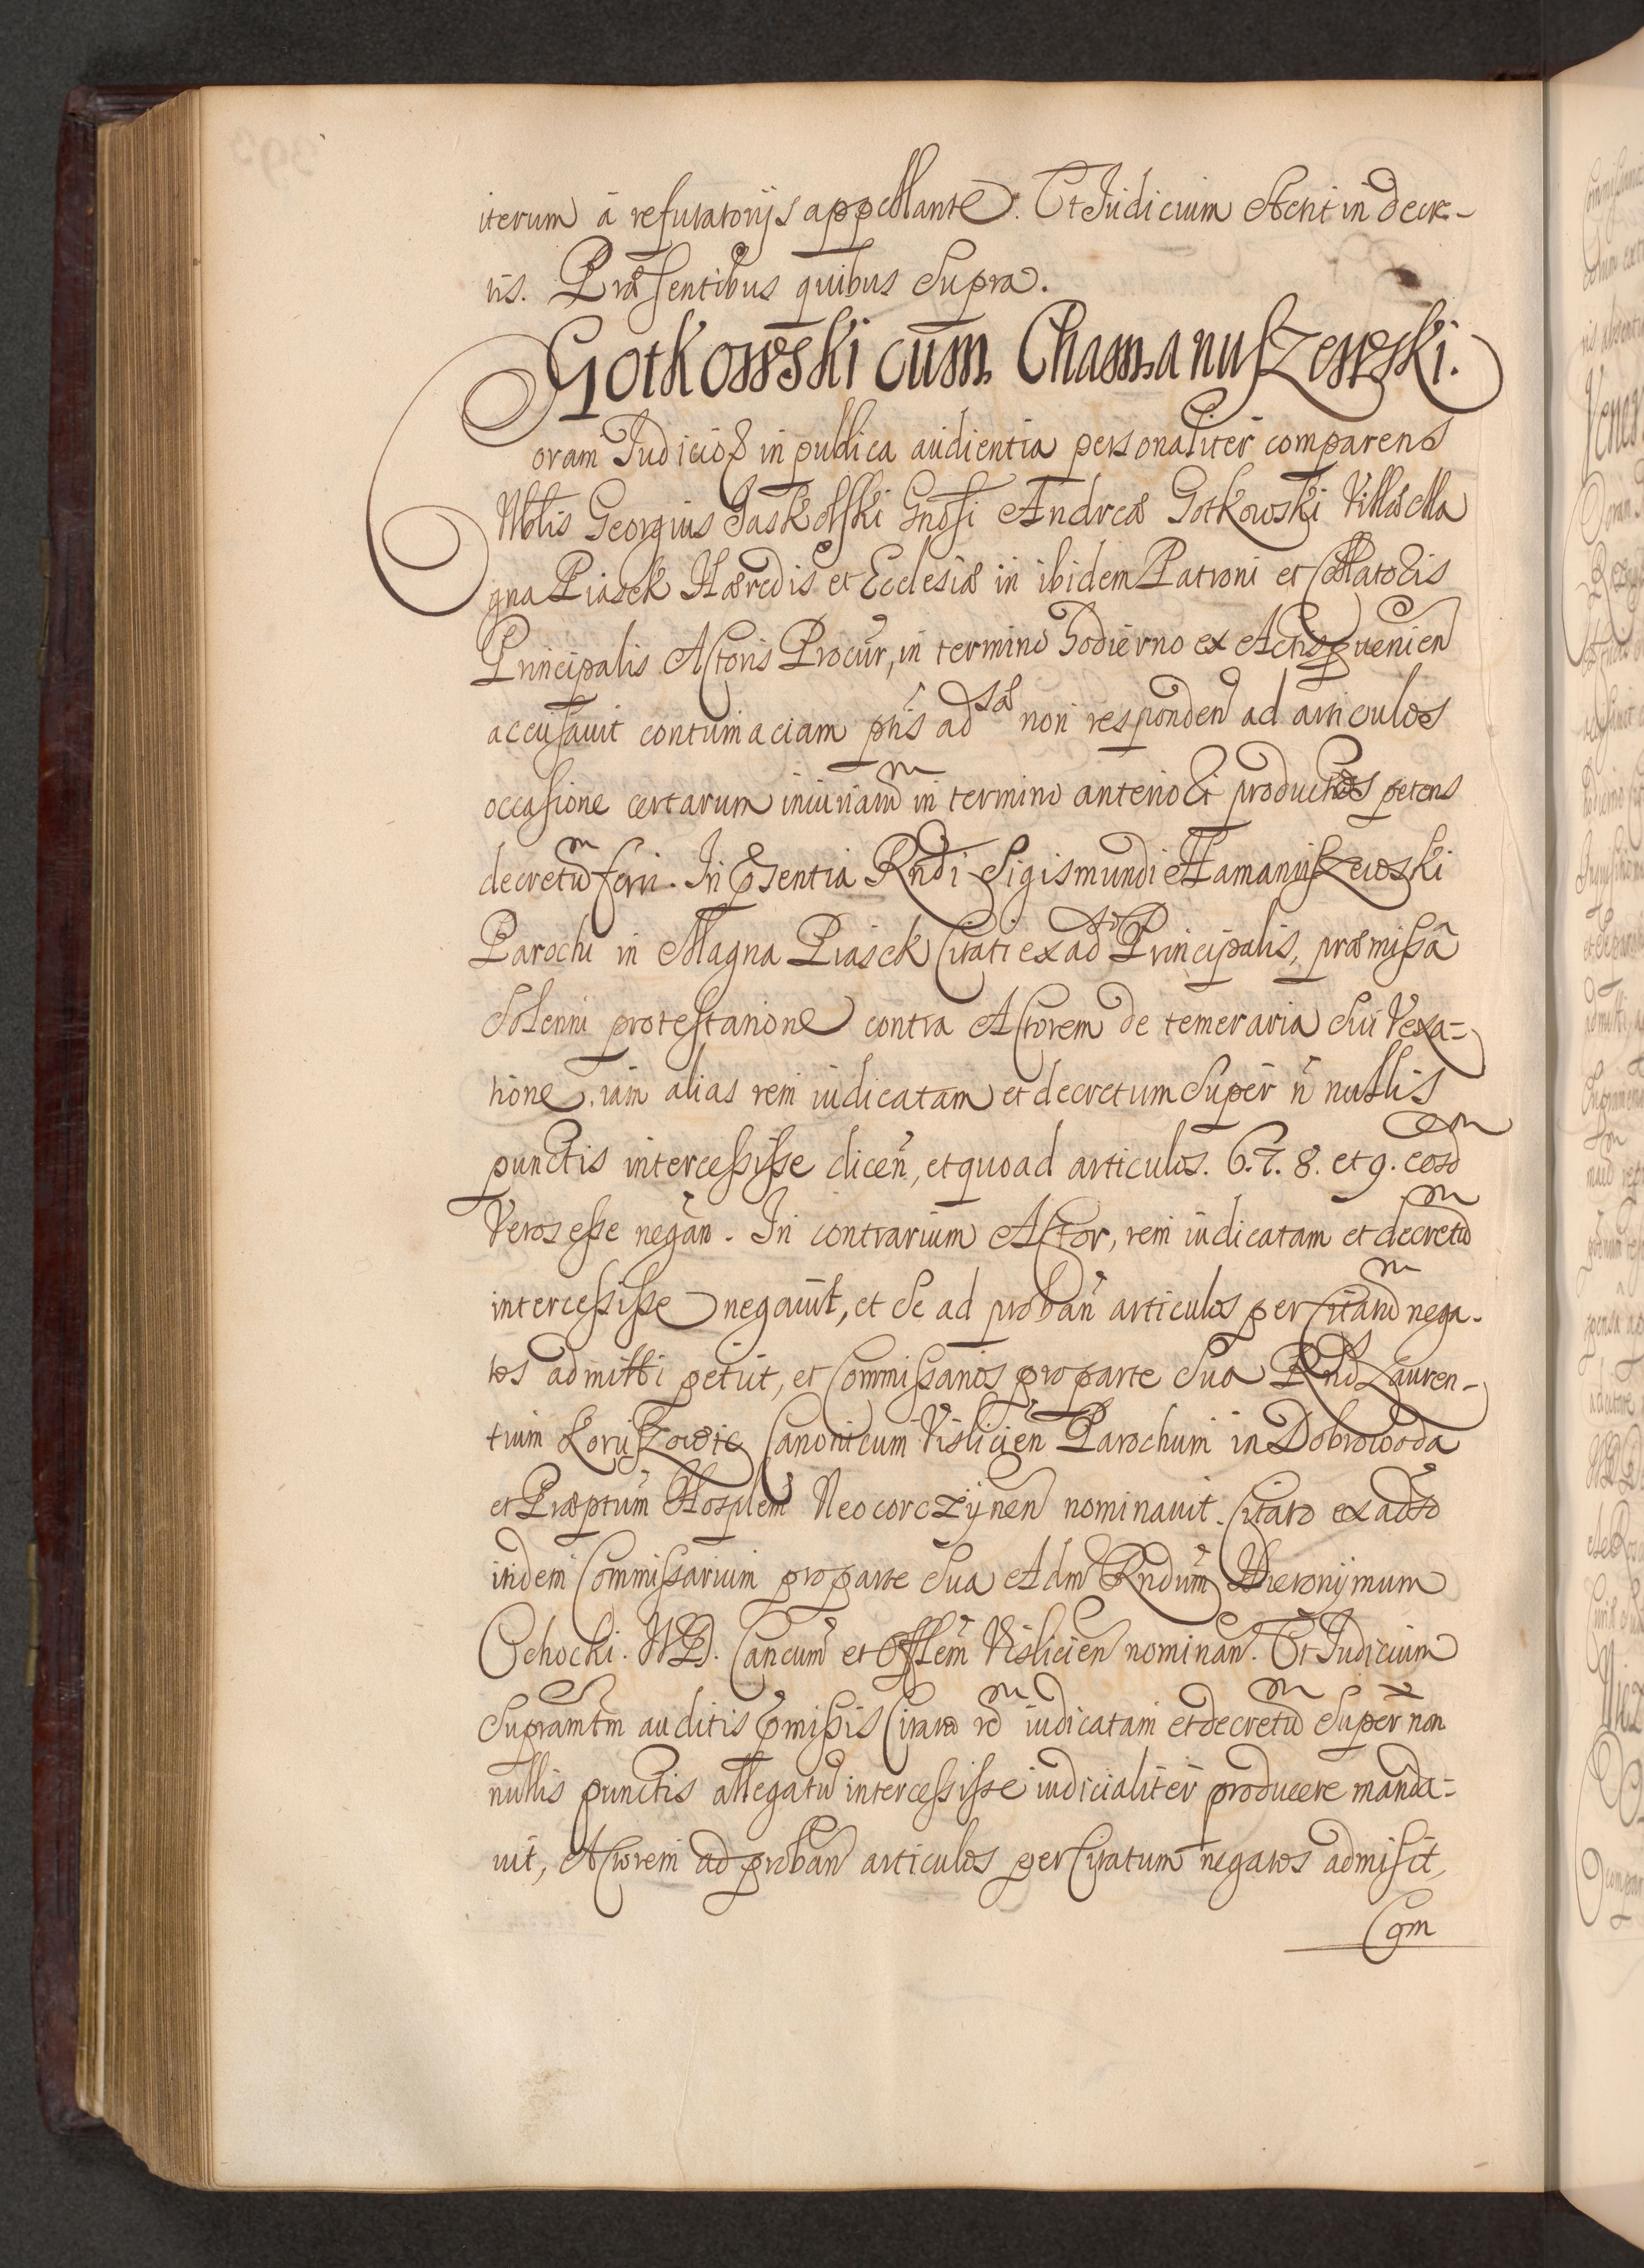 iterum á refutatorijs appellante. Et Iudicium stetit in decre-
tis. Præsentibus quibus supra.
Gotkowski cum Chamanuszewski.
Coram Iudicio &c in publica audientia personaliter comparens
Nblis Georgius Jaskolski Gnosi Andreæ Gotkowski Villæ Ma
gna Piasek Hæredis et Ecclesiæ in ibidem Patroni et Collatoris
Principalis Actoris Procur, in termino hodierno ex Actis pvenien
accusauit contumaciam ptis adsæ non responden ad articulos
occasione certarum iniuriarū in termino anteriori productos petens
decretū ferri. In pσsentia Rndi Sigismundi Hamanuszewski
Parochi in Magna Piasek Citati ex adσ Principalis, præmissâ
solenni protestatione contra Actorem de temeraria sui Vexa-
tione, iam alias rem iudicatam et decretum super ñ nullis
punctis intercessisse dicen, et quoad articulos. 6. 7. 8. et 9. eosd
Veros esse negan. In contrarium Actor, rem iudicatam et decretū
intercessisse negauit, et se ad proban articulos per Citatū nega-
tos admitti petiit, et Commissarios pro parte sua Rnd Lauren-
tium Koryszowic Canonicum Vislicien Parochum in Dobrowoda
et Præptum Hosplem Neocorczijnen nominauit. Citato ex aduso
itidem Commissarium pro parte sua Adm Rndum Hieronijmum
Cchocki. U.I.D. Cancum et Offlem Vislicien nominan. Et Iudicium
supramtm auditis pmissis Citatū rē iudicatam et decretū super non
nullis punctis allegatū intercessisse iudicialiter producere manda-
uit, Actorem ad proban articulos per Citatum negatos admisit,
Com